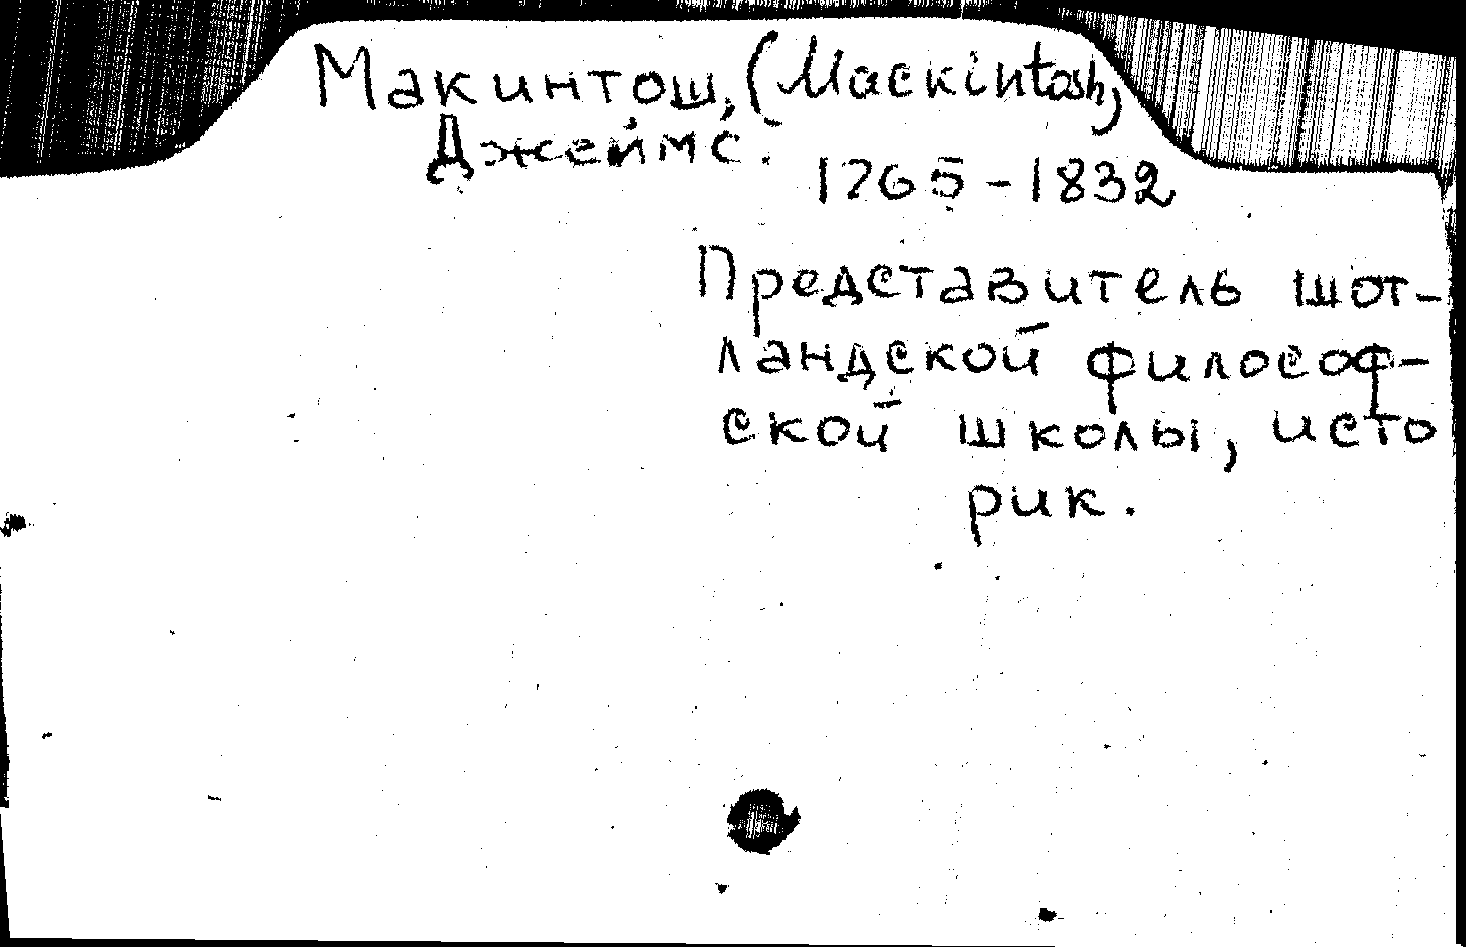 Макинтош, (Mackintosh)
Джеймс.
1765-1832
Представитель шот-
ландской философ-
ской школы, исто
рик.